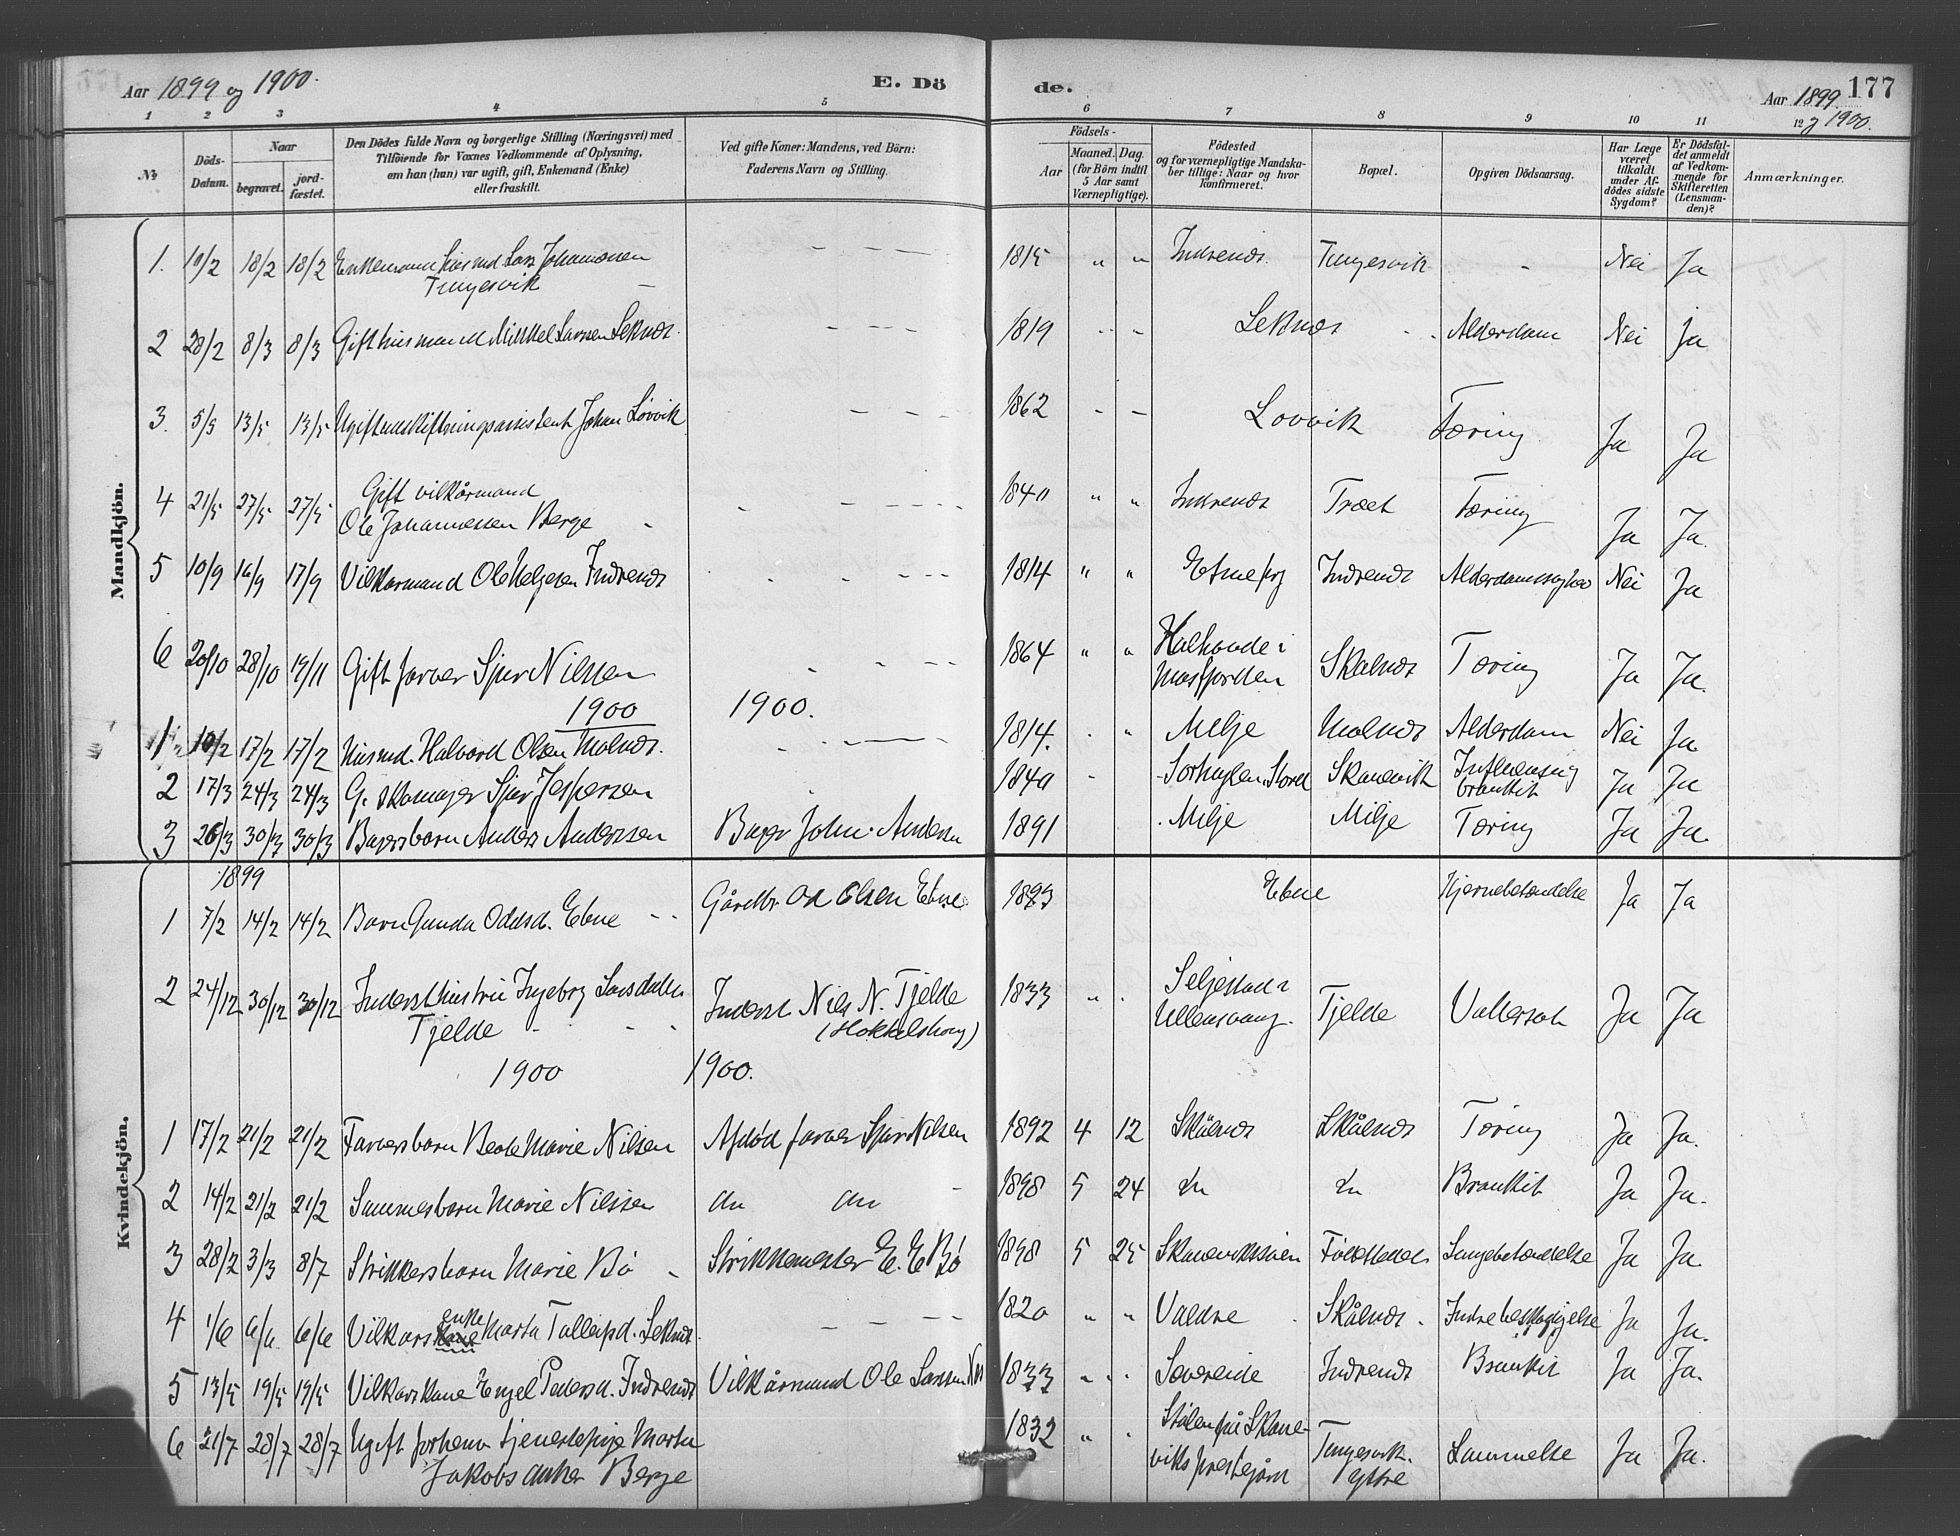 Aar 1899 og 1900.
E. Dö
de.
Aar 1899 og 1900.
177
1 2 3 4 5 6 7 8 9 10 11 12
No
Döds-Datum.
Naar
begravet. jord-fæstet.
Den Dödes fulde Navn og borgerlige Stilling (Næringsvei) med
Tilföiende for Voxnes Vedkommende af Oplysning,
om han (hun) var ugift, gift, Enkemand (Enke)
eller fraskilt.
Ved gifte Koner: Mandens, ved Börn:
Faderens Navn og Stilling.
Födsels-
Aar
Maaned. Dag.
(for Börn indtil
5 Aar samt
Værnepligtige).
Födested
og for værnepligtige Mandska-
ber tillige: Naar og hvor
konfirmeret.
Bopæl.
Opgiven Dödsaarsag.
Har Læge
været
tilkaldt
under Af-
dödes sidste
Sygdom?
Er Dödsfal-
det anmeldt
af Vedkom-
mende for
Skifteretten
(Lensman-
den)?
Anmærkninger.
Mandkjön.
1. 10/2 18/2 18/2 Enkemand Husmd Lars Johannesen 1815 " " Indrenæs Tungesvik - Nei Ja
Tungesvik
2 28/2 8/3 8/3 Gift husmand Mikkel Larsen Leknæs 1819 Leknæs Alderdom Nei Ja
3 5/5 13/5 13/5 Ugift udskiftningsassistent Johan Lovvik 1862 Lovvik Tæring Ja Ja
4 21/5 27/5 27/5 Gift vilkårmand 1840 " " Indrenæs Træet Tæring Ja Ja.
Ole Johannessen Berge
5 10/9 16/9 17/9 Vilkårmand Ole Helgesen Indrenæs 1814 " " Etne prg Indrenæs Nei Ja
6 20/10 28/10 19/11 Gift farver Sjur Nilssen 1864 " " i Masfjorden Skålnæs Tæring Ja Ja.
1900 1900.
1 10/2 17/2 17/2 Husmd. Halvord Olsen Molnæs. 1814. Milje Molnæs Alderdom Nei Ja
2 17/3 24/3 24/3 G. skomager Sjur Jespersen 1840 Stord Skaanevik Brankit Ja Ja
3 26/3 30/3 30/3 Bagersbarn Anders Anderssen Bager John Andersen 1891 Milje Milje Tæring Ja Ja.
Kvindekjön.
1899
1 7/2 14/2 14/2 Barn Gunda Oddsd. Ebne Gårdbr. Od Olsen Ebne 1893 Ebne Hjernebetændelse Ja Ja
2 24/12 30/12 30/12 Inderst hustru Ingeborg Larsdatter Inderst Nils N. Tjelde 1833 " Seljestad i Ullensvang. Tjelde Vattersot Ja Ja
Tjelde
1900 1900.
1 17/2 21/2 21/2 Farversbarn Beate Marie Nilsen Afdød farver Sjur Nilsen 1892 4 12 Skålnæs Skålnæs Tæring Ja Ja.
2 14/2 21/2 21/2 Sammesbarn Marie Nilssen do do 1898 5 24 do do Brankit Ja Ja.
3 28/2 3/3 8/7 Strikkersbarn Marie Bö Strikkemester E. E Bö 1898 5 25 Lungebetændelse Ja Ja.
4 1/6 6/6 6/6 Vilkårs enke Marta Tollefsd. Leknæs. 1820 " " Valdre Skålnæs. Indre beskadigelse Ja Ja.
5 13/5 19/5 19/5 Vilkårskone Engel Pedersd. Indrenæs Vilkårmand Ole Larsen 1833 " Sævereide Indrenæs Brankit Ja Ja.
6 21/7 28/7 28/7 Ugift forhenv. tjenestepige Marta 1832 " Skåne- Tungesvik Lammelse Ja Ja.
Jakobsdatter Berge viks prestegjæld ytre